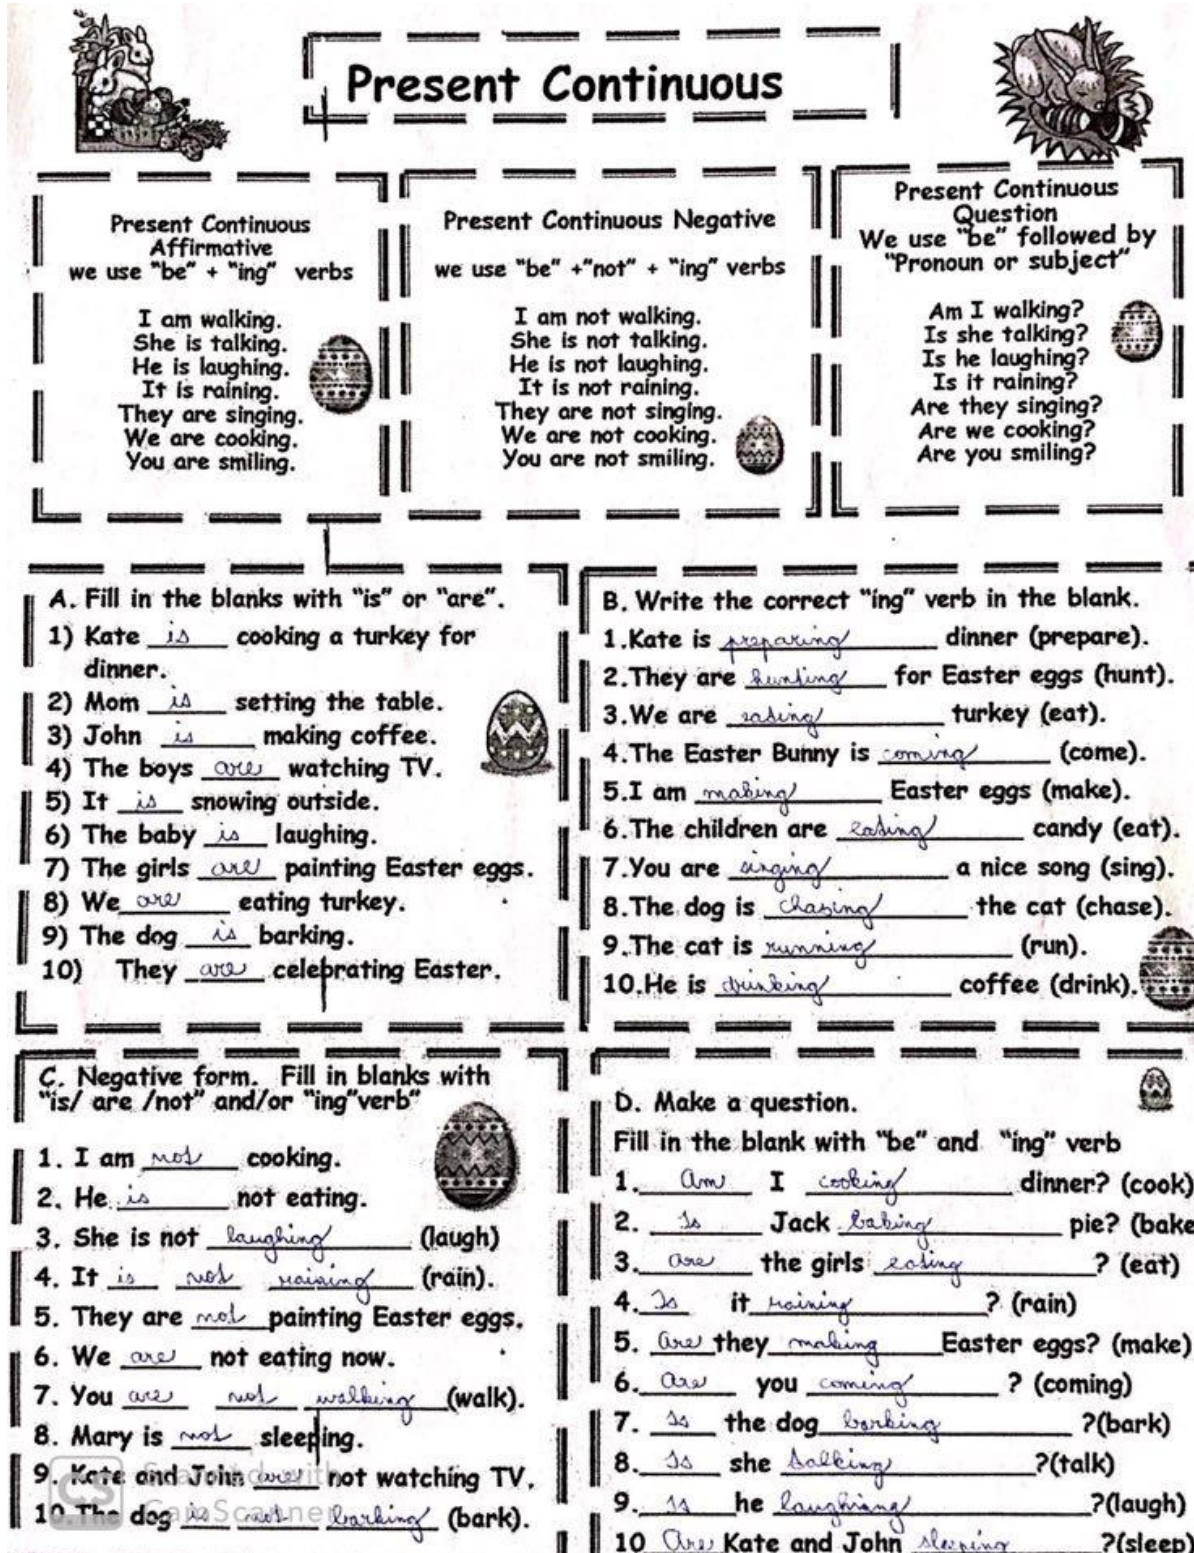 Present Continuous
Present Continuous
Affirmative
we use "be" + "ing" verbs
I am walking.
She is talking.
He is laughing.
It is raining.
They are singing.
We are cooking.
You are smiling.
Present Continuous Negative
we use "be" +"not" + "ing" verbs
I am not walking.
She is not talking.
He is not laughing.
It is not raining.
They are not singing.
We are not cooking.
You are not smiling.
Present Continuous
Question
We use "be" followed by
"Pronoun or subject"
Am I walking?
Is she talking?
Is he laughing?
Is it raining?
Are they singing?
Are we cooking?
Are you smiling?
A. Fill in the blanks with "is" or "are".
1) Kate is cooking a turkey for
dinner.
2) Mom is setting the table.
3) John is making coffee.
4) The boys are watching TV.
5) It is snowing outside.
6) The baby is laughing.
7) The girls are painting Easter eggs.
8) We are eating turkey.
9) The dog is barking.
10) They are celebrating Easter.
B. Write the correct "ing" verb in the blank.
1.Kate is preparing dinner (prepare).
2.They are hunting for Easter eggs (hunt).
3.We are eating turkey (eat).
4.The Easter Bunny is coming (come).
5.I am making Easter eggs (make).
6.The children are eating candy (eat).
7.You are singing a nice song (sing).
8.The dog is chasing the cat (chase).
9.The cat is running (run).
10.He is drinking coffee (drink).
C. Negative form. Fill in blanks with
"is/ are /not" and/or "ing"verb"
1. I am not cooking.
2. He is not eating.
3. She is not laughing (laugh)
4. It is not raining (rain).
5. They are not painting Easter eggs.
6. We are not eating now.
7. You are not walking (walk).
8. Mary is not sleeping.
9. Kate and John are not watching TV.
10. The dog is not barking (bark).
D. Make a question.
Fill in the blank with "be" and "ing" verb
1. Am I cooking dinner? (cook)
2. Is Jack baking pie? (bake
3. are the girls eating ? (eat)
4. Is it raining ? (rain)
5. Are they making Easter eggs? (make)
6. Are you coming ? (coming)
7. Is the dog barking ?(bark)
8. Is she talking ?(talk)
9. Is he laughiang ?(laugh)
10 Are Kate and John sleeping ?(sleep)
CS Scanned with
CamScanner